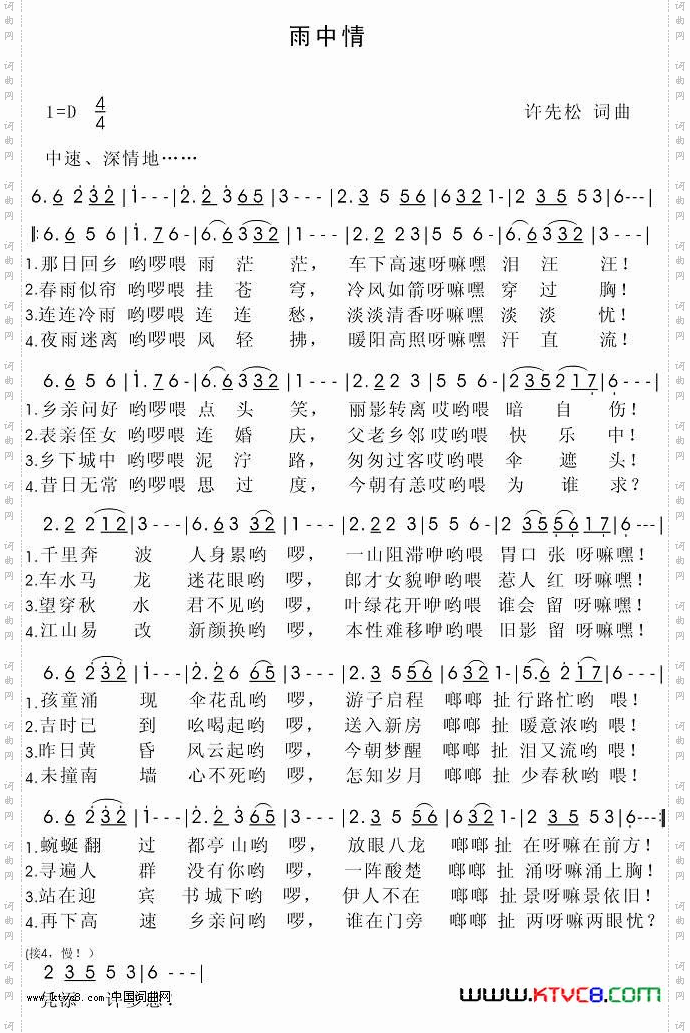 雨中情
1=D 4/4
许先松 词曲
中速、深情地……
6. 6 2 3 2 | 1 - - - | 2. 2 3 6 5 | 3 - - - | 2. 3 5 5 6 | 6 3 2 1 - | 2 3 5 5 3 | 6 - - - |
|: 6. 6 5 6 | 1. 7 6 - | 6. 6 3 3 2 | 1 - - - | 2. 2 2 3 | 5 5 6 - | 6. 6 3 3 2 | 3 - - - |
1.那日回乡 哟啰喂 雨 茫 茫， 车下高速呀嘛嘿 泪 汪 汪！
2.春雨似帘 哟啰喂 挂 苍 穹， 冷风如箭呀嘛嘿 穿 过 胸！
3.连连冷雨 哟啰喂 连 连 愁， 淡淡清香呀嘛嘿 淡 淡 忧！
4.夜雨迷离 哟啰喂 风 轻 拂， 暖阳高照呀嘛嘿 汗 直 流！
6. 6 5 6 | 1. 7 6 - | 6. 6 3 3 2 | 1 - - - | 2. 2 2 3 | 5 5 6 - | 2 3 5 2 1 7 | 6 - - - |
1.乡亲问好 哟啰喂 点 头 笑， 丽影转离 哎哟喂 暗 自 伤！
2.表亲侄女 哟啰喂 连 婚 庆， 父老乡邻 哎哟喂 快 乐 中！
3.乡下城中 哟啰喂 泥 泞 路， 匆匆过客 哎哟喂 伞 遮 头！
4.昔日无常 哟啰喂 思 过 度， 今朝有恙 哎哟喂 为 谁 求？
2. 2 2 1 2 | 3 - - - | 6. 6 3 3 2 | 1 - - - | 2. 2 2 3 | 5 5 6 - | 2 3 5 5 6 1 7 | 6 - - - |
1.千里奔 波 人身累哟 啰， 一山阻滞咿哟喂 胃口 张 呀嘛嘿！
2.车水马 龙 迷花眼哟 啰， 郎才女貌咿哟喂 惹人 红 呀嘛嘿！
3.望穿秋 水 君不见哟 啰， 叶绿花开咿哟喂 谁会 留 呀嘛嘿！
4.江山易 改 新颜换哟 啰， 本性难移咿哟喂 旧影 留 呀嘛嘿！
6. 6 2 3 2 | 1 - - - | 2. 2 2 6 5 | 3 - - - | 2. 3 5 5 6 | 6 3 2 1 - | 5. 6 2 1 7 | 6 - - - |
1.孩童涌 现 伞花乱哟 啰， 游子启程 啷啷 扯 行路忙哟 喂！
2.吉时已 到 吆喝起哟 啰， 送入新房 啷啷 扯 暖意浓哟 喂！
3.昨日黄 昏 风云起哟 啰， 今朝梦醒 啷啷 扯 泪又流哟 喂！
4.未撞南 墙 心不死哟 啰， 怎知岁月 啷啷 扯 少春秋哟 喂！
6. 6 2 3 2 | 1 - - - | 2. 2 3 6 5 | 3 - - - | 2. 3 5 5 6 | 6 3 2 1 - | 2 3 5 5 3 | 6 - - - :|
1.蜿蜒翻 过 都亭山哟 啰， 放眼八龙 啷啷 扯 在呀嘛在前方！
2.寻遍人 群 没有你哟 啰， 一阵酸楚 啷啷 扯 涌呀嘛涌上胸！
3.站在迎 宾 书城下哟 啰， 伊人不在 啷啷 扯 景呀嘛景依旧！
4.再下高 速 乡亲问哟 啰， 谁在门旁 啷啷 扯 两呀嘛两眼忧？
(接4，慢！)
2 3 5 5 3 | 6 - - - |
www.ktvc8.com 中国词曲网
WWW.KTVC8.COM
词曲网